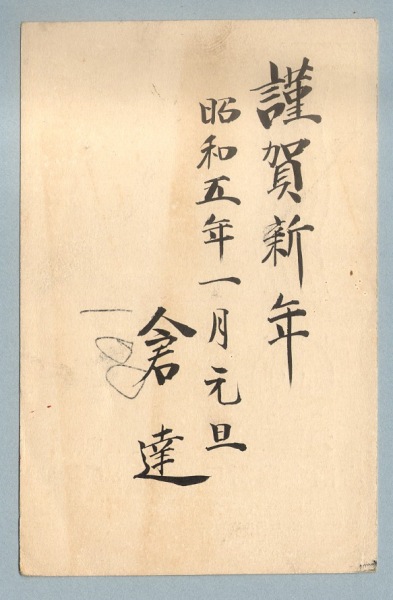 謹賀新年
昭和五年一月元旦
倉達